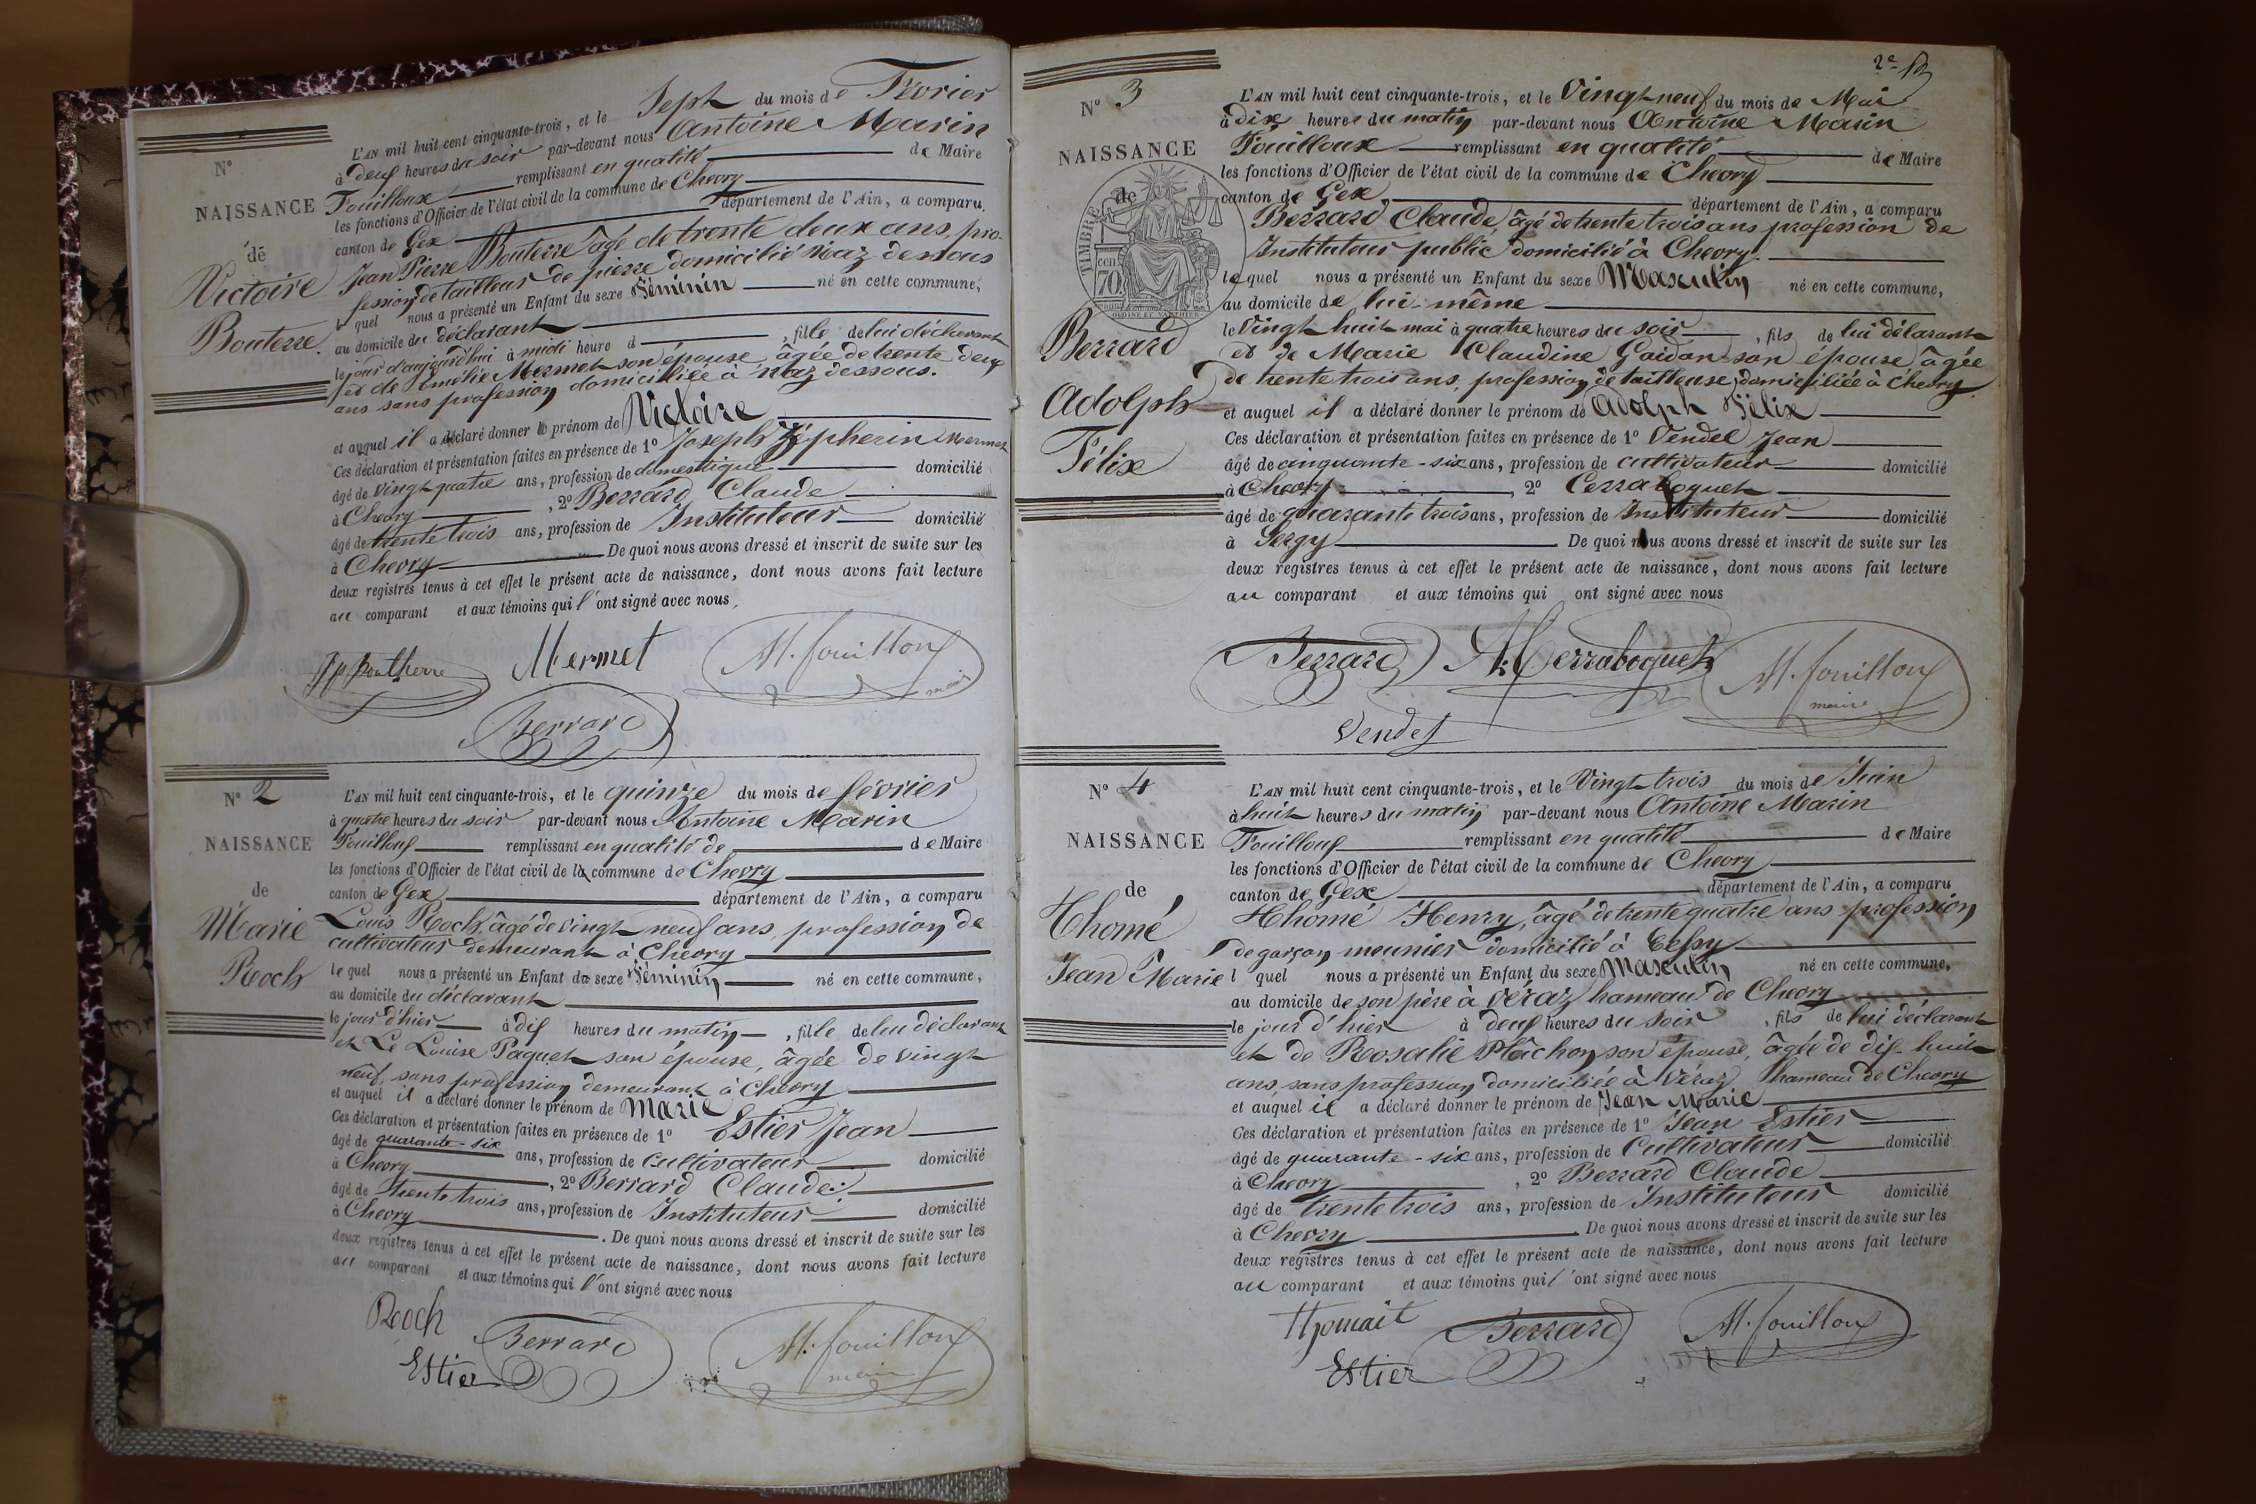 N°
NAISSANCE
de
Victoire
Bouterre.
L'AN mil huit cent cinquante-trois, et le Sept du mois de Février
à deux heures du soir par-devant nous Antoine Marin
Fouilloux remplissant en qualité de Maire
les fonctions d'Officier de l'état civil de la commune de Chevry
canton de Gex département de l'Ain, a comparu
Jean Pierre Bouterre âgé de trente deux ans, pro-
fession de tailleur de pierre domicilié Naz dessous
le quel nous a présenté un Enfant du sexe Féminin né en cette commune,
au domicile du déclarant
le jour d'aujourd'hui à midi heure d , fille de lui déclarant
et de Emélie Mermet son épouse âgée de trente deux
ans sans profession domiciliée à Naz dessous.
et auquel il a déclaré donner le prénom de Victoire
Ces déclaration et présentation faites en présence de 1° Joseph Zépherin Mermet
âgé de vingt quatre ans, profession de domestique domicilié
à Chevry , 2° Berrard Claude
âgé de trente trois ans, profession de Instituteur domicilié
à Chevry De quoi nous avons dressé et inscrit de suite sur les
deux registres tenus à cet effet le présent acte de naissance, dont nous avons fait lecture
au comparant et aux témoins qui l'ont signé avec nous,
Mermet M. fouilloux
maire
Berrard
N° 2
NAISSANCE
de
Marie
Roch
L'AN mil huit cent cinquante-trois, et le quinze du mois de février
à quatre heures du soir par-devant nous Antoine Marin
Fouilloux remplissant en qualité de de Maire
les fonctions d'Officier de l'état civil de la commune de Chevry
canton de Gex département de l'Ain, a comparu
Louis Roch, âgé de vingt neuf ans, profession de
cultivateur demeurant à Chevry
le quel nous a présenté un Enfant du sexe Féminin né en cette commune,
au domicile du déclarant
le jour d'hier à dix heures du matin , fille de lui déclarant
et de Louise Paquet son épouse, âgée de vingt
neuf, sans profession demeurant à Chevry
et auquel il a déclaré donner le prénom de Marie
Ces déclaration et présentation faites en présence de 1° Estier Jean
âgé de quarante-six ans, profession de Cultivateur domicilié
à Chevry , 2° Berrard Claude
âgé de trente trois ans, profession de Instituteur domicilié
à Chevry . De quoi nous avons dressé et inscrit de suite sur les
deux registres tenus à cet effet le présent acte de naissance, dont nous avons fait lecture
au comparant et aux témoins qui l'ont signé avec nous
Roch Berrard M. fouilloux
maire
Estier
2e
N° 3
NAISSANCE
de
TIMBRE
70 cen
Berrard
Adolph
Félix
L'AN mil huit cent cinquante-trois, et le Vingt neuf du mois de Mai
à dix heures du matin par-devant nous Antoine Marin
Fouilloux remplissant en qualité de Maire
les fonctions d'Officier de l'état civil de la commune de Chevry
canton de Gex département de l'Ain, a comparu
Berrard Claude, âgé de trente trois ans profession de
Instituteur public domicilié à Chevry.
le quel nous a présenté un Enfant du sexe Masculin né en cette commune,
au domicile de lui-même
le Vingt huit mai à quatre heures du soir , fils de lui délarant
et de Marie Claudine Gaidon son épouse âgée
de trente trois ans, profession de tailleuse, domiciliée à Chevry
et auquel il a déclaré donner le prénom de Adolph Félix
Ces déclaration et présentation faites en présence de 1° Vendel Jean
âgé de cinquante-six ans, profession de cultivateur domicilié
à Chevry , 2° Cerraboquet
âgé de quarante trois ans, profession de Instituteur domicilié
à Sergy De quoi nous avons dressé et inscrit de suite sur les
deux registres tenus à cet effet le présent acte de naissance, dont nous avons fait lecture
au comparant et aux témoins qui ont signé avec nous
Berrard M. fouilloux
maire
Vendel
N° 4
NAISSANCE
de
Thomé
Jean Marie
L'AN mil huit cent cinquante-trois, et le Vingt trois du mois de Juin
à huit heures du matin par-devant nous Antoine Marin
Fouilloux remplissant en qualité de Maire
les fonctions d'Officier de l'état civil de la commune de Chevry
canton de Gex département de l'Ain, a comparu
Thomé Henry, âgé de trente quatre ans profession
de garçon meunier domicilié à Cessy
l quel nous a présenté un Enfant du sexe Masculin né en cette commune,
au domicile de son père à Véraz hameau de Chevry
le jour d'hier à deux heures du soir , fils de lui déclarant
et de Rosalie Plâchon son épouse, âgée de dix-huit
ans sans profession domiciliée à Véraz hameau de Chevry
et auquel il a déclaré donner le prénom de Jean Marie
Ces déclaration et présentation faites en présence de 1° Jean Estier
âgé de quarante-six ans, profession de Cultivateur domicilié
à Chevry , 2° Berrard Claude
âgé de trente trois ans, profession de Instituteur domicilié
à Chevry De quoi nous avons dressé et inscrit de suite sur les
deux registres tenus à cet effet le présent acte de naissance, dont nous avons fait lecture
au comparant et aux témoins qui l'ont signé avec nous
Berrard M. fouilloux
Estier